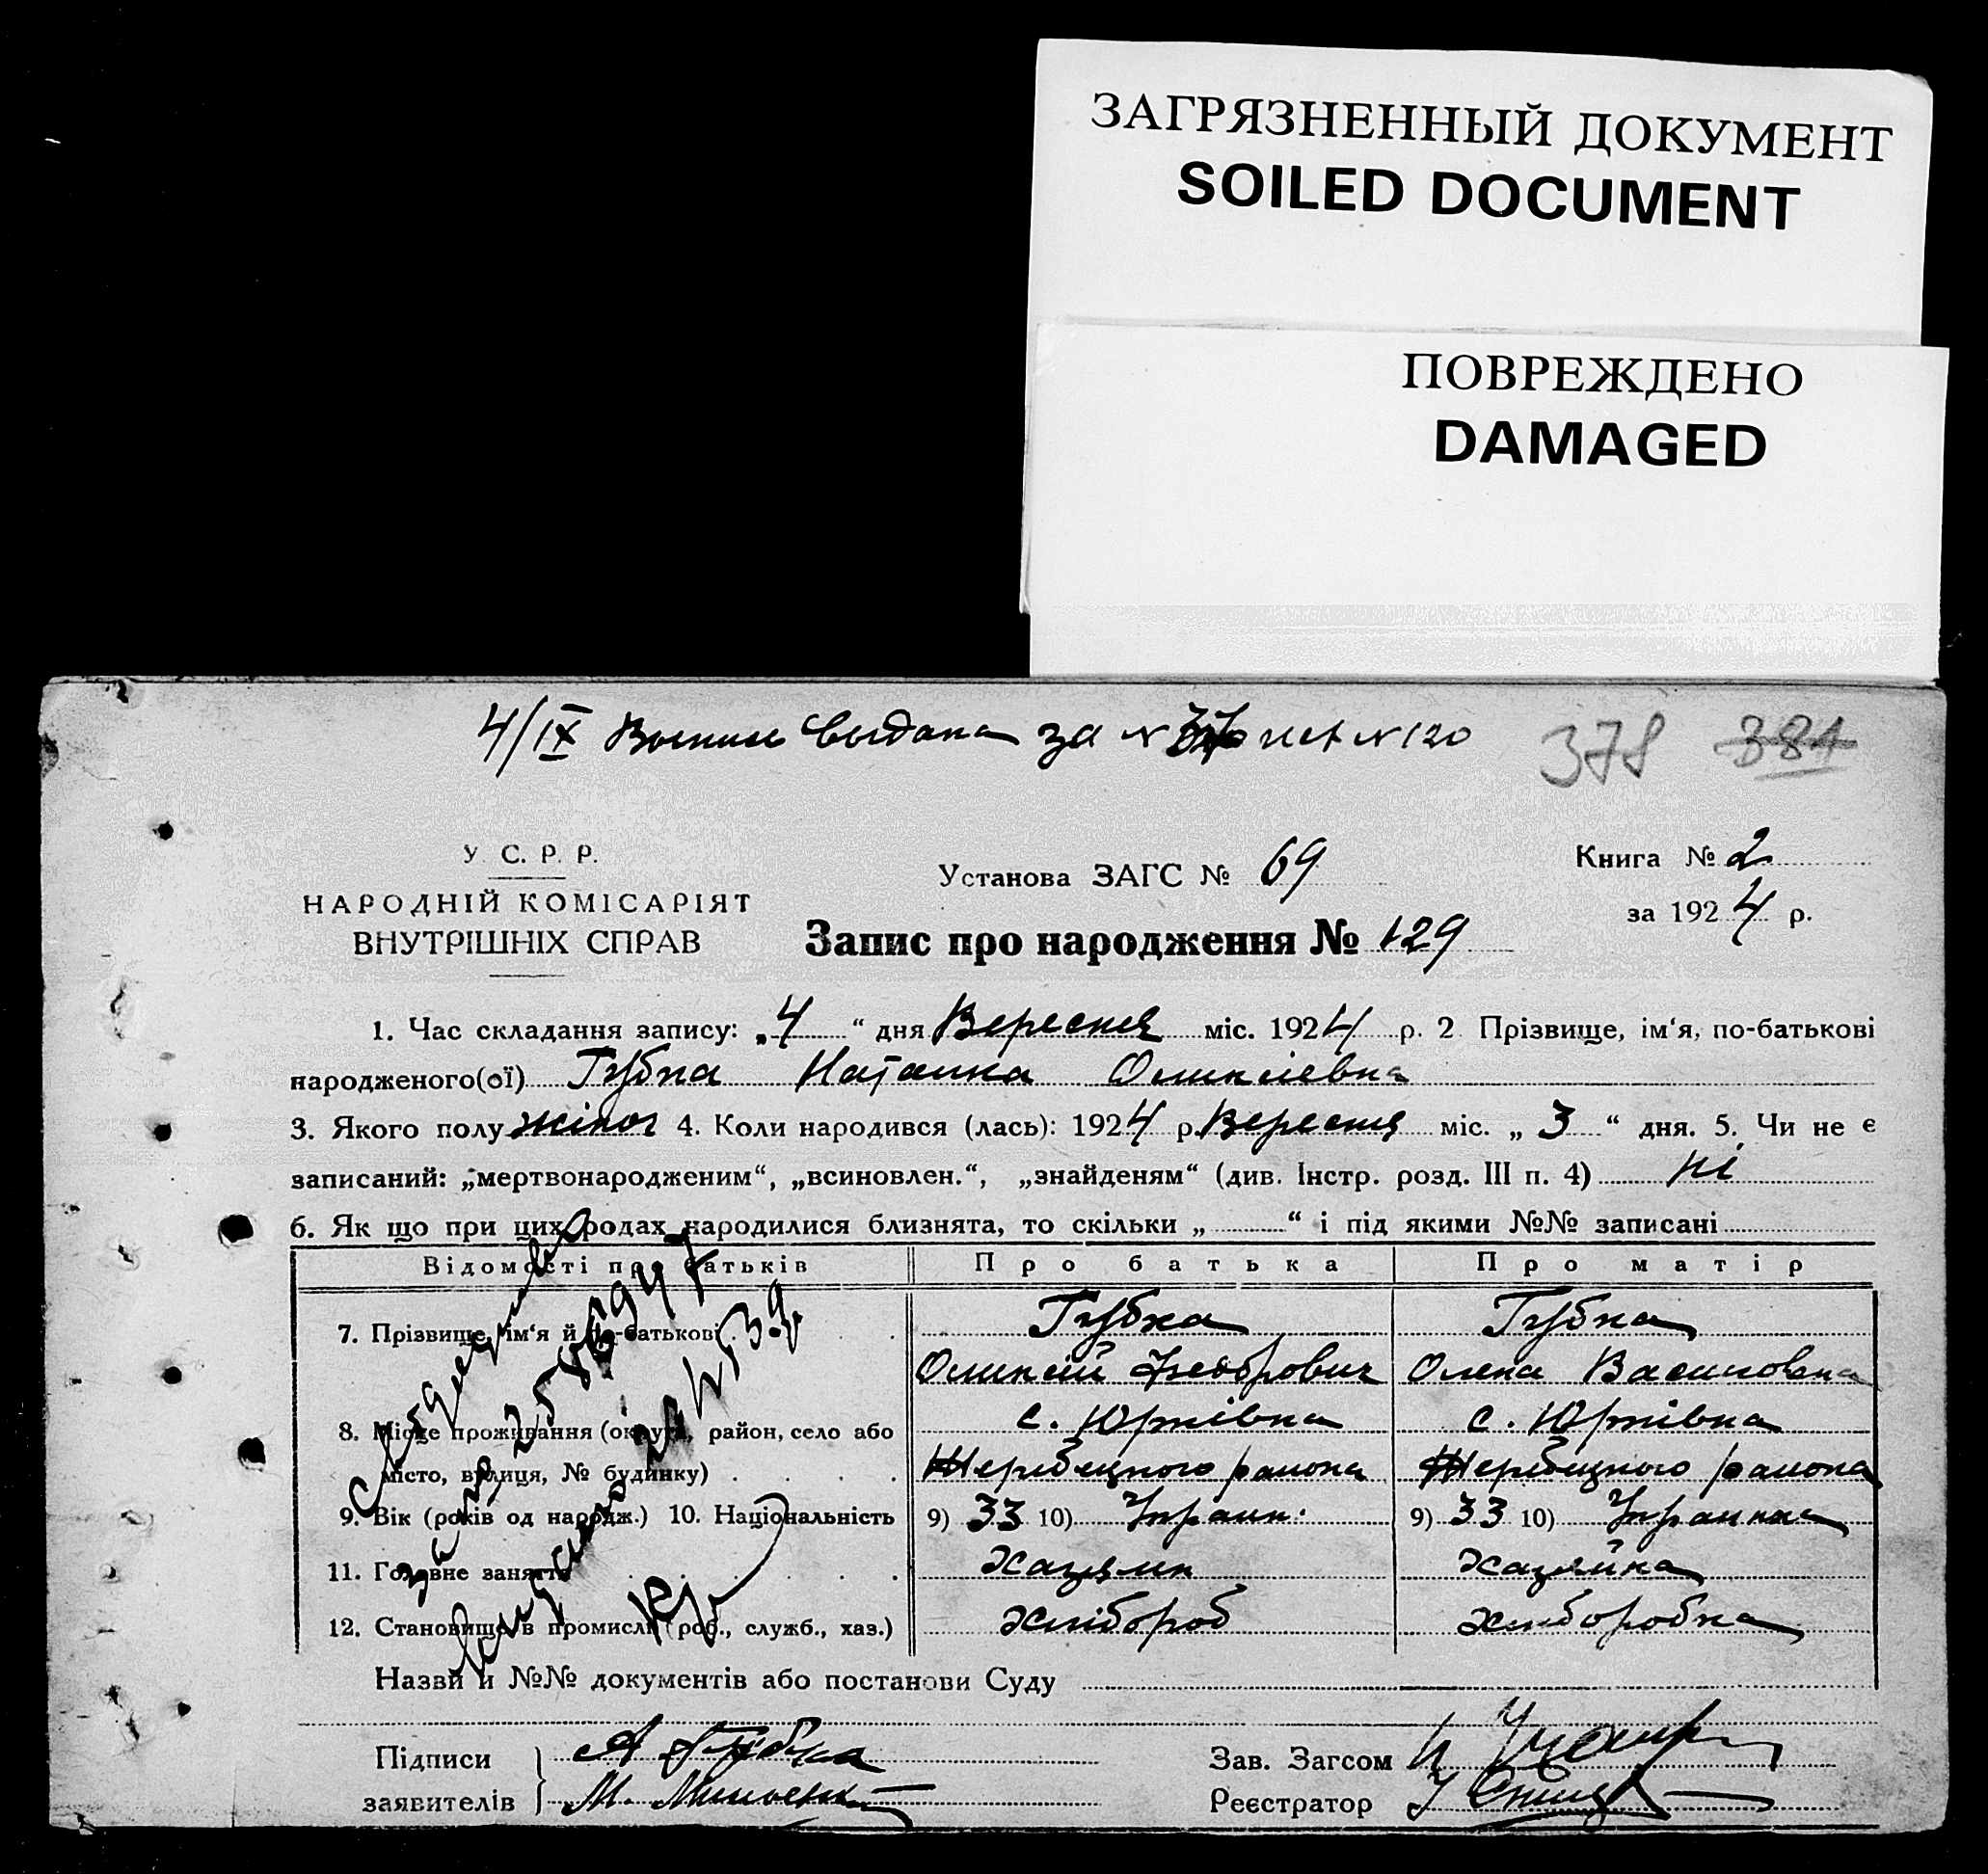 ЗАГРЯЗНЕННЫЙ ДОКУМЕНТ
SOILED DOCUMENT
ПОВРЕЖДЕНО
DAMAGED
4/IX выдана за № № 120
378 384
У. С. Р. Р.
НАРОДНІЙ КОМІСАРІЯТ
ВНУТРІШНІХ СПРАВ
Установа ЗАГС № 69
Книга № 2
за 1924 р.
Запис про народження № 129
1. Час складання запису: „4“ дня Вересня міс. 1924 р. 2 Прізвище, ім‘я, по-батькові
народженого(ої) Губка Наталка
3. Якого полу жіноч 4. Коли народився (лась): 1924 р. Вересня міс. „3“ дня. 5. Чи не є
записаний: „мертвонародженим“, „всиновлен.“, „знайденям“ (див. Інстр. розд. III п. 4) ні
6. Як що при цих родах народилися близнята, то скільки „ “ і під якими №№ записані
Відомості про батьків Про батька Про матір
7. Прізвище, ім‘я й по-батькові Губка Губка
Олексій Федорович Олена Василовна
с. Юрківка с. Юрківка
8. Місце проживання (округа, район, село або
місто, вулиця, № будинку) Жеребецкого района Жеребецкого района
9. Вік (років од народж.) 10. Національність 9) 33 10) Украин. 9) 33 10) Украинка
11. Головне заняття Хазяин Хазяйка
12. Становище в промислі (роб., служб., хаз.) Хлібороб Хліборобка
Назви и №№ документів або постанови Суду
Підписи А Губка Зав. Загсом
заявителів М. Реєстратор